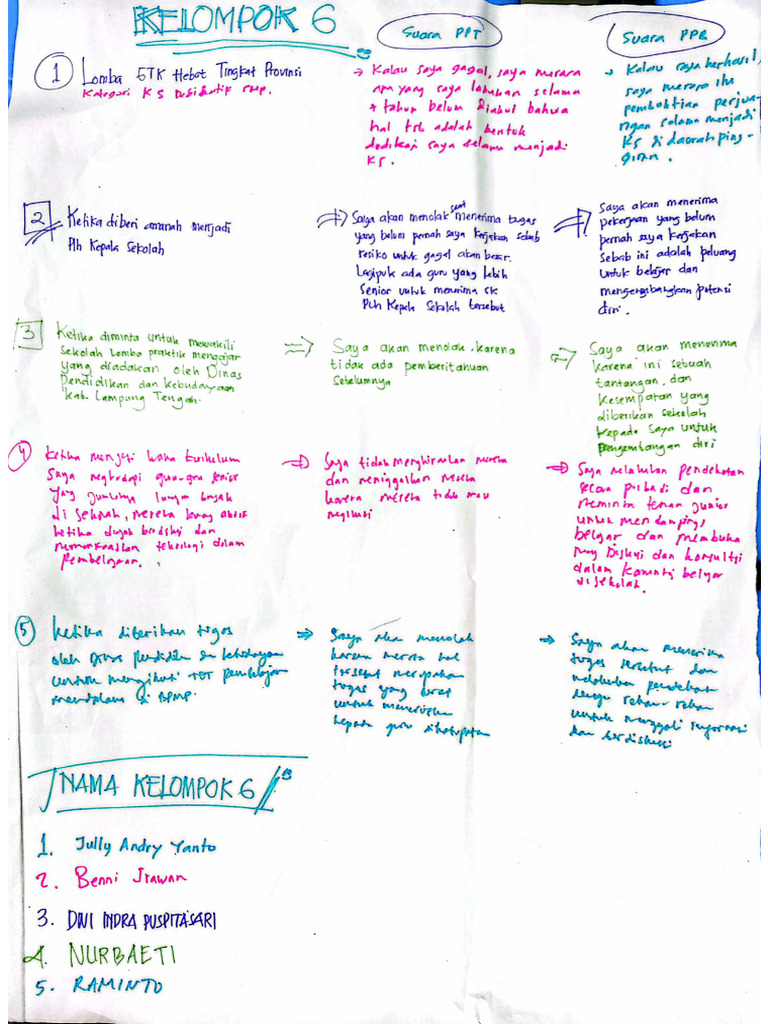 KELOMPOK 6
Suara PPT
Suara PPB
1 Lomba GTK Hebat Tingkat Provinsi
Kategori KS Dedikatif SMP.
→ Kalau saya gagal, saya merasa
apa yang saya lakukan selama
4 tahun belum diakui bahwa
hal tsb adalah bentuk
dedikasi saya selama menjadi
KS.
→ Kalau saya berhasil,
saya merasa itu
pembuktian perjua-
ngan selama menjadi
KS di daerah ping-
giran.
2 Ketika diberi amanah menjadi
Plh Kepala Sekolah
⇒ Saya akan menolak saat menerima tugas
yang belum pernah saya kerjakan sebab
resiko untuk gagal akan besar.
Lagipula ada guru yang lebih
Senior untuk menerima SK
PLh Kepala Sekolah tersebut
⇒ Saya akan menerima
pekerjaan yang belum
pernah saya kerjakan
Sebab ini adalah peluang
untuk belajar dan
mengembangkan potensi
diri.
3 Ketika diminta untuk mewakili
sekolah Lomba praktik mengajar
yang diadakan oleh Dinas
Pendidikan dan Kebudayaan
kab. Lampung Tengah.
⇒ Saya akan menolak, karena
tidak ada pemberitahuan
sebelumnya
⇒ Saya akan menerima
karena ini sebuah
tantangan, dan
kesempatan yang
diberikan sekolah
kepada saya untuk
pengembangan diri
4 Ketika menjadi waka kurikulum
saya menghadapi guru-guru senior
yang
di sekolah, mereka kurang aktif
ketika diajak berdiskusi dan
memanfaatkan teknologi dalam
pembelajaran.
⇒ Saya tidak menghiraukan mereka
dan meninggalkan mereka
karena mereka tidak mau
mengikuti
⇒ Saya melakukan pendekatan
secara pribadi dan
meminta teman junior
untuk mendampingi
belajar dan membuka
ruang diskusi dan konsultasi
dalam komunitas belajar
di sekolah.
5 ketika diberikan tugas
oleh Dinas pendidikan dan kebudayaan
untuk mengikuti TOT pembelajaran
mendalam di BPMP.
⇒ Saya akan menolak
karena merasa hal
tersebut merupakan
tugas yang berat
untuk meneruskan
kepada guru di kabupaten
⇒ Saya akan menerima
tugas tersebut dan
melakukan pendekatan
dengan rekan-rekan
untuk menggali informasi
dan berdiskusi
NAMA KELOMPOK 6
1. Jully Andry Yanto
2. Benni Irawan
3. DWI INDRA PUSPITASARI
4. NURBAETI
5. RAMINTO